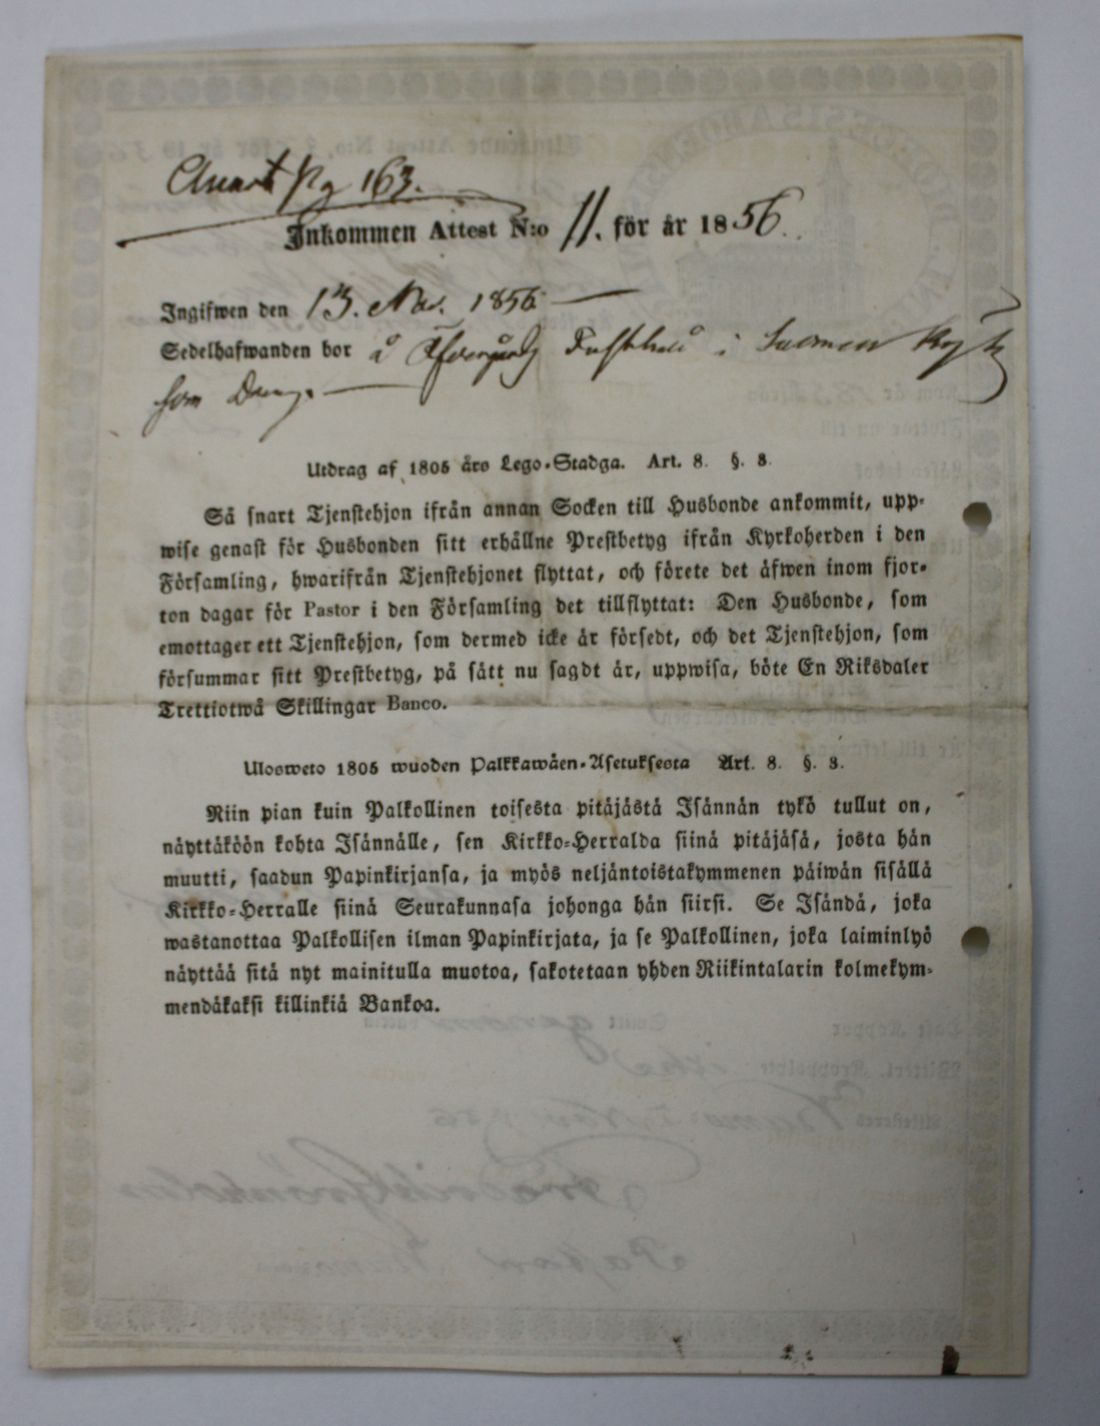 pag 163.
Inkommen Attest N:o 11. för år 1856.
Ingifwen den 13. Nov. 1856
Sedelhafwanden bor å i
som Dräng.
Utdrag af 1805 års Lego-Stadga. Art. 8. §. 8.
Så snart Tjenstehjon ifrån annan Socken till Husbonde ankommit, upp-
wise genast för Husbonden sitt erhållne Prestbetyg ifrån Kyrkoherden i den
Församling, hwarifrån Tjenstehjonet flyttat, och förete det äfwen inom fjor-
ton dagar för Pastor i den Församling det tillflyttat: Den Husbonde, som
emottager ett Tjenstehjon, som dermed icke är försedt, och det Tjenstehjon, som
försummar sitt Prestbetyg, på sätt nu sagdt är, uppwisa, böte En Riksdaler
Trettiotwå Skillingar Banco.
Ulosweto 1805 wuoden Palkkawäen-Asetuksesta Art. 8. §. 8.
Niin pian kuin Palkollinen toisesta pitäjästä Isännän tykö tullut on,
näyttäköön kohta Isännälle, sen Kirkko-Herralda siinä pitäjäsä, josta hän
muutti, saadun Papinkirjansa, ja myös neljäntoistakymmenen päiwän sisällä
Kirkko-Herralle siinä Seurakunnasa johonga hän siirsi. Se Isändä, joka
wastanottaa Palkollisen ilman Papinkirjata, ja se Palkollinen, joka laiminlyö
näyttää sitä nyt mainitulla muotoa, sakotetaan yhden Riikintalarin kolmekym-
mendäkaksi killinkiä Bankoa.